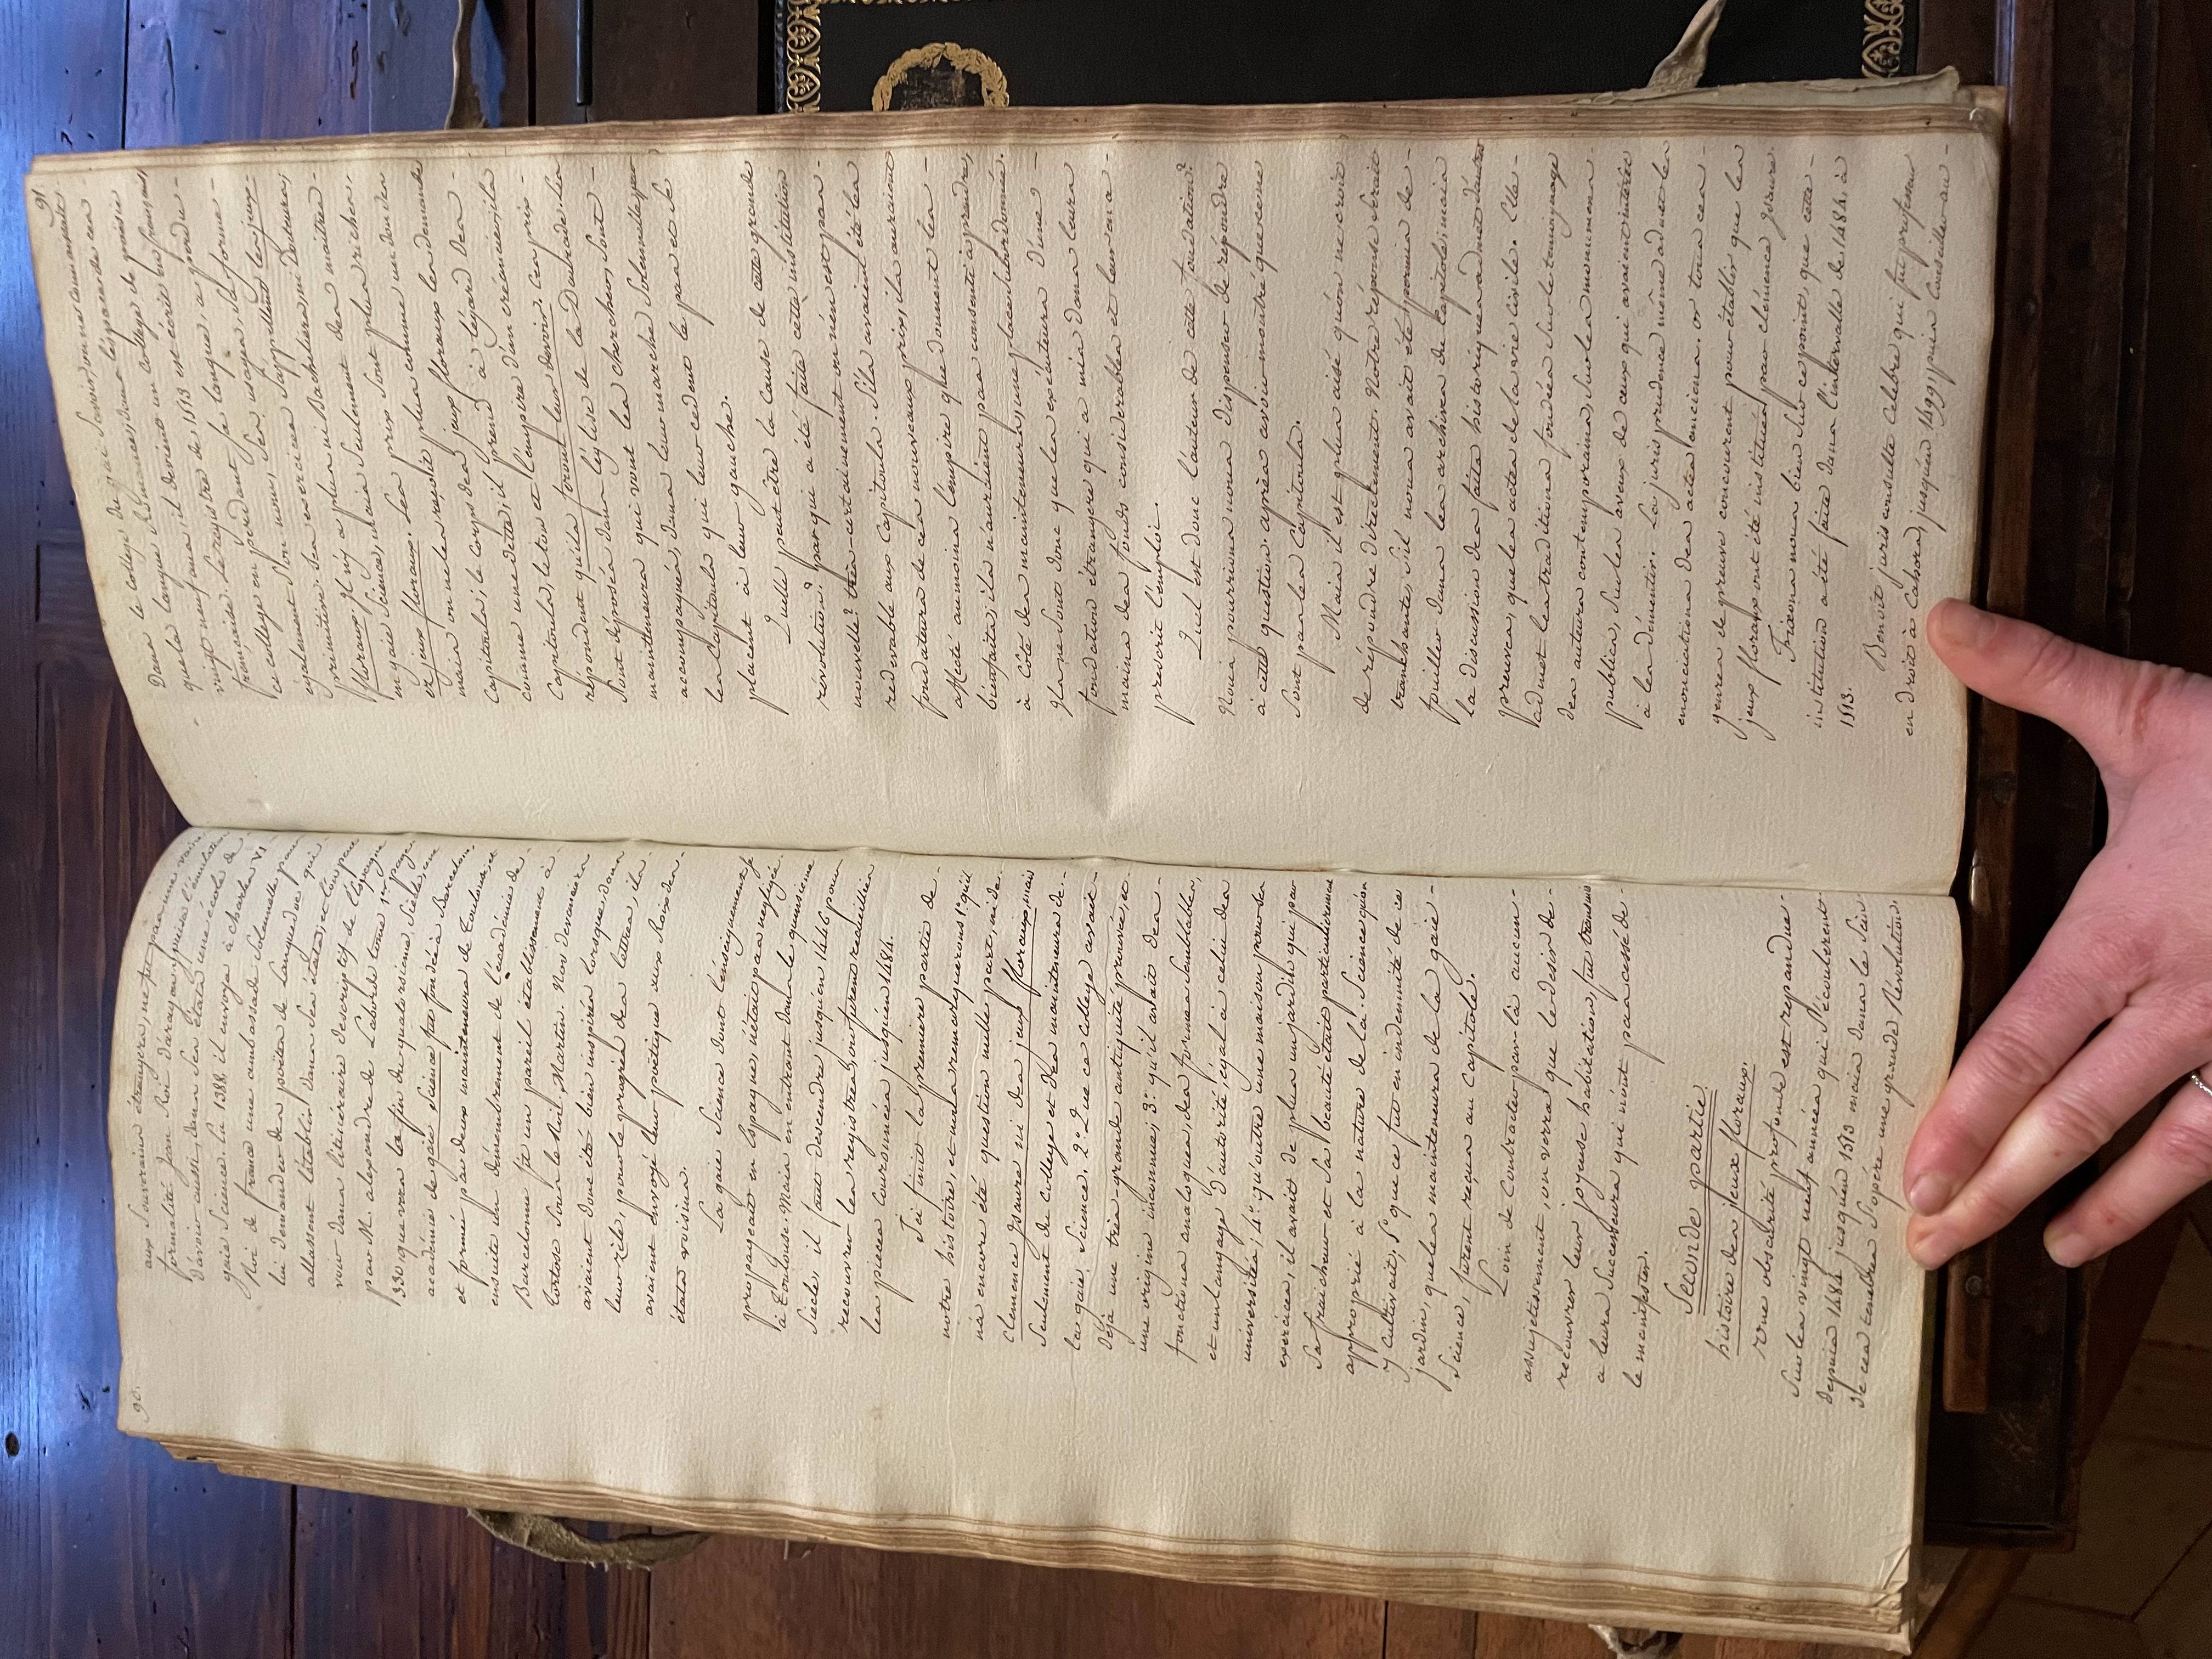 90.
aux Souverains étrangers, ne fut pas une vaine
formalité. Jean Roi d'aragon, épris l'émulation
d'avoir aussi, dans Ses états une école de
gaie Science. En 1388, il envoya à charles VI
Roi de france une ambassade Solennelle pour
lui demander des poètes de Languedoc qui
allassent l'établir dans Ses états, et l'on peut
voir dans l'itineraire descriptif de l'Espagne
par M. alexandre de Laborde tome 1er page
330 que vers la fin du quatorsième Siècle, une
académie de gaie Science fut fondée à Barcelone,
et formée par deux mainteneurs de toulouse, et
ensuite un démembrement de l'académie de
Barcelonne fit un pareil établissement à
tortose Sous le Roi Martin. Nos devanciers
avaient donc été bien inspirés lorsque, dans
leur zèle, pour le progrès des lettres, ils
avaient envoyé leur poëtique aux Rois des
états voisins.
La gaie Science dont l'enseignement se
propageait en Espagne, n'était pas negligée
à toulouse. Mais en entrant dans le quinsieme
Siècle, il faut descendre jusqu'en 1446, pour
recouvrer les registres, on y trouve
les pièces couronnées jusqu'en 1484.
Ici finit la première partie de
notre histoire, et nous remarquerons 1º qu'il
n'a encore été question nulle part, ni de
Clemence Isaure ni des jeux floraux, mais
Seulement du college et des mainteneurs de
la gaie Science. 2º Que ce college avait
déjà une très-grande antiquité prouvée, et
une origine inconnue; 3º qu'il avait des
fonctions analogues, des formes Semblables,
et un langage d'autorité, égal à celui des
universités; 4º qu'outre une maison pour Ses
exercices, il avait de plus un jardin qui par
Sa fraîcheur et Sa beauté était particulièrement
approprié à la nature de la Science qu'on
y cultivait, 5º que ce fut en indemnité de ce
jardin, que les mainteneurs de la gaie
Science, furent reçus au Capitole.
Loin de Contracter par là aucun
assujetissement, on verra que le desir de
recouvrer leur joyeuse habitation, fut transmis
a leurs Successeurs qui n'ont pas cessé de
le manifester.
Seconde partie.
histoire des jeux floraux.
Une obscurité profonde est repandue
Sur les vingt neuf années qui S'écoulèrent
depuis 1484 jusqu'en 1513 mais dans le Sein
de ces tenebres S'opère une grande Révolution.
91
Dans le college du gai Savoir, on ne
que la langue Romance, dans l'espace de ces
vingt neuf ans, il devient un college de poësie
française. Le registre de 1513 est écrit en français;
ce college en perdant Sa langue, a perdu
egalement Son nom, Ses usages, Sa forme
primitive. Ses exercices S'appellent les jeux
floraux. Il n'y a plus ni Bacheliers, ni Docteurs,
en gaie Science, mais Seulement des maitres
ez jeux floraux. Les prix Sont plus riches.
mais on ne les reçoit plus comme un don des
Capitouls; le corps des jeux floraux les demande
comme une dette, il prend à l'égard des
Capitouls, le ton et l'empire d'un créancier; ils
répondent qu'ils feront leur devoir. Ces prix
Sont déposés dans l'église de la Daurade. Les
mainteneurs qui vont les chercher, Sont
accompagnés, dans leur marche Solennelle par
les Capitouls qui leur cedent le pas et Se
placent à leur gauche.
Quelle peut être la cause de cette grande
révolution? par qui a été faite cette institution
nouvelle? très-certainement on n'en est pas
redevable aux Capitouls. S'ils avaient été les
fondateurs de ces nouveaux prix, ils auroient
affecté au moins l'empire que donnent les
bienfaits, ils n'auraient pas consenti à prendre,
à côté des mainteneurs, une place subordonnée.
Ils ne Sont donc que les exécuteurs d'une
fondation étrangere qui a mis dans leurs
mains des fonds considerables et leur en a
prescrit l'emploi.
Quel est donc l'auteur de cette fondation?
Nous pourrions nous dispenser de répondre
à cette question, après avoir montré que ce ne
Sont pas les Capitouls.
Mais il est plus aisé qu'on ne croit
de répondre directement. Notre réponse Serait
tranchante, S'il nous avait été permis de
fouiller dans les archives du Capitole, mais
la discussion des faits historiques admet d'autres
preuves, que les actes de la vie civile. Elle
admet les traditions fondées Sur le temoignage
des auteurs contemporains, Sur les monumens
publics, Sur les aveux de ceux qui avaient intérêt
à les démentir. La jurisprudence même admet les
enonciations des actes anciens. or tous ces
genres de preuve concourent pour établir que les
jeux floraux ont été institués par clémence Isaure.
Fixons nous bien Sur ce point, que cette
institution a été faite dans l'intervalle de 1484 à
1513.
Benoit juris consulte Celebre qui fut professeur
en droit à Cahors, jusqu'en 1499, puis Conseiller au